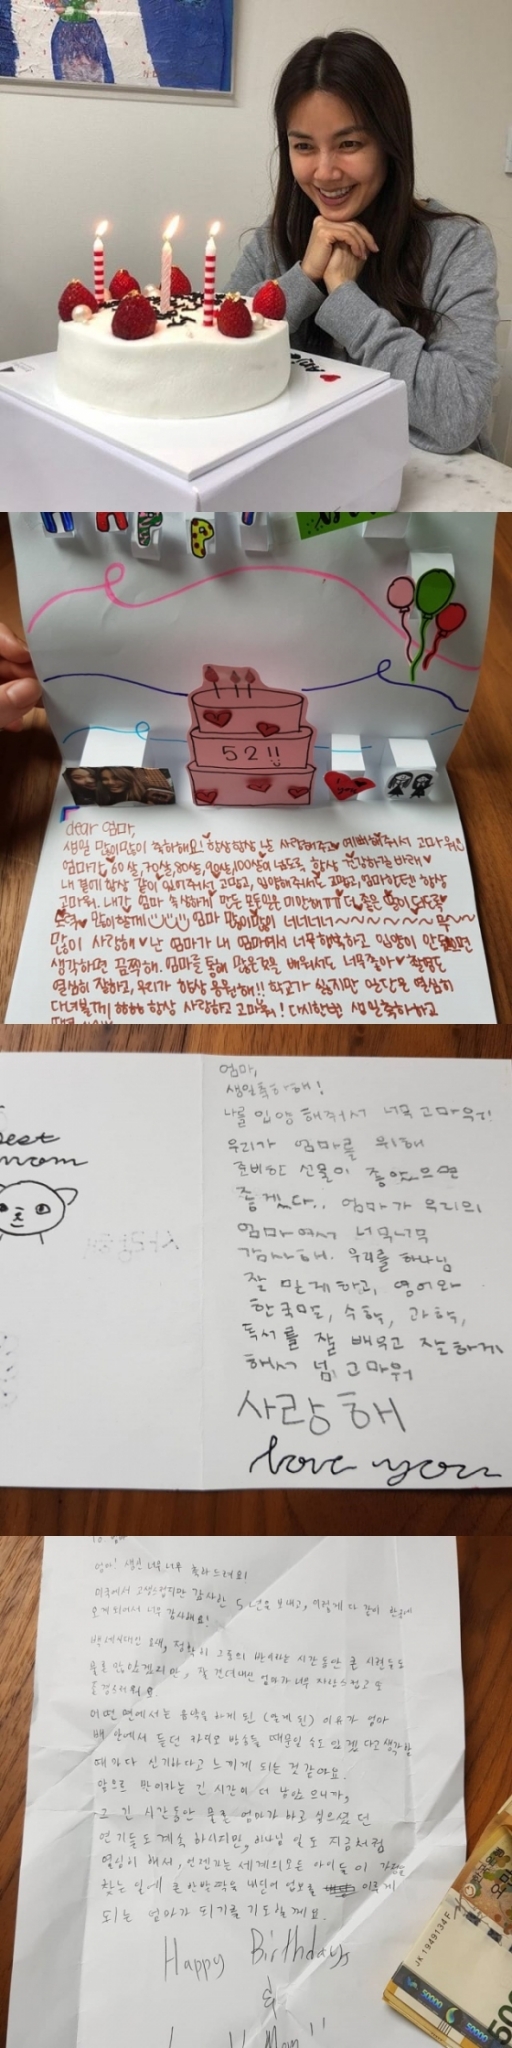 HAPPY
52!!
dear 엄마,
생일 많이많이 축하해요! 항상항상 날 사랑해주고 예뻐해주셔서 고마워요
엄마가 60살,70살,80살,90살,100살이 넘도록 항상 건강하길 바래
내 곁에 항상 같이 있어주셔서 고맙고, 입양해주셔서도 고맙고, 엄마한텐 항상
고마워. 내가 엄마 속상하게 만든 모든일은 미안해 더 좋은 많이되도록
노력 많이할께 엄마 많이많이 너너너너~~~~~~~ 무~~
많이 사랑해 난 엄마가 내 엄마여서 너무행복하고 입양이 안됬으면
생각하면 끔찍해. 엄마를 통해 많은것을 배워서도 너무좋아 촬영도
열심히 잘하고, 우리가 항상 응원해!! 학교가 싫지만 일단은 열심히
다녀볼께 항상 사랑하고 고마워! 다시한번 생일축하하고
best
mom
엄마,
생일축하해!
나를 입양 해주셔서 너무 고마워!
우리가 엄마를 위해
준비한 선물이 좋았으면
좋겠다.. 엄마가 우리의
엄마여서 너무너무
감사해. 우리를 하나님
잘 믿게하고, 영어와
한국말, 수학, 과학,
독서를 잘 배우고 잘하게
해줘서 넘 고마워
사랑해
love you
엄마! 생신 너무너무 축하드려요!
미국에서 고생스럽지만 감사한 5년을 보내고, 이렇게 다 같이 한국에
오게 되어서 너무 감사해요!
백세시대인 요새, 정확히 그 정도의 반이라는 시간동안 큰 시련들도
물론 많았겠지만, 잘 견뎌내신 엄마가 너무 자랑스럽고 또
존경스러워요.
어떤 면에서는 음악을 하게 된 (알게 된) 이유가 엄마
배 안에서 듣던 라디오 방송들 때문일 수도 있겠다고 생각할
때마다 신기하다고 느끼게 되는 것 같아요.
앞으로 반이라는 긴 시간이 더 남았으니까,
그 긴 시간동안 물론 엄마가 하고 싶으셨던
연기들도 계속 하시지만, 하나님 일도 지금처럼
열심히 해서, 언젠가는 세계의 모든 아이들이 가정을
찾는 일에 큰 한발짝을 내딛어 업보를 이루게
되는 엄마가 되기를 기도할게요.
Happy Birthday
&
Mom!!
JK 1949134 F
50000